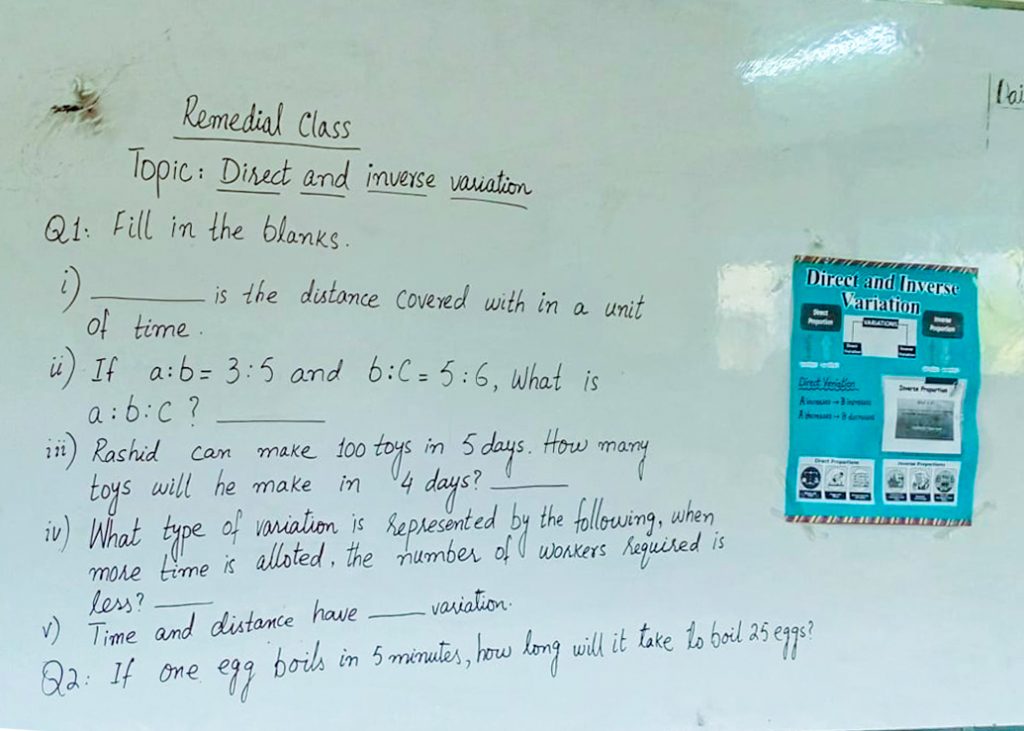 Remedial Class
Topic: Direct and inverse variation
Q1: Fill in the blanks.
i) ________ is the distance covered with in a unit
of time.
ii) If a:b = 3:5 and b:C = 5:6, What is
a:b:c? ________
iii) Rashid can make 100 toys in 5 days. How many
toys will he make in 4 days? ________
iv) What type of variation is represented by the following, when
more time is alloted, the number of workers required is
less? ________
v) Time and distance have ________ variation.
Q2: If one egg boils in 5 minutes, how long will it take to boil 25 eggs?
Direct and Inverse
Variation
Direct
Proportion
VARIATIONS
Inverse
Proportion
Direct Variation
A increases → B increases
A decreases → B decreases
Inverse Proportion
Direct Proportions
Inverse Proportions